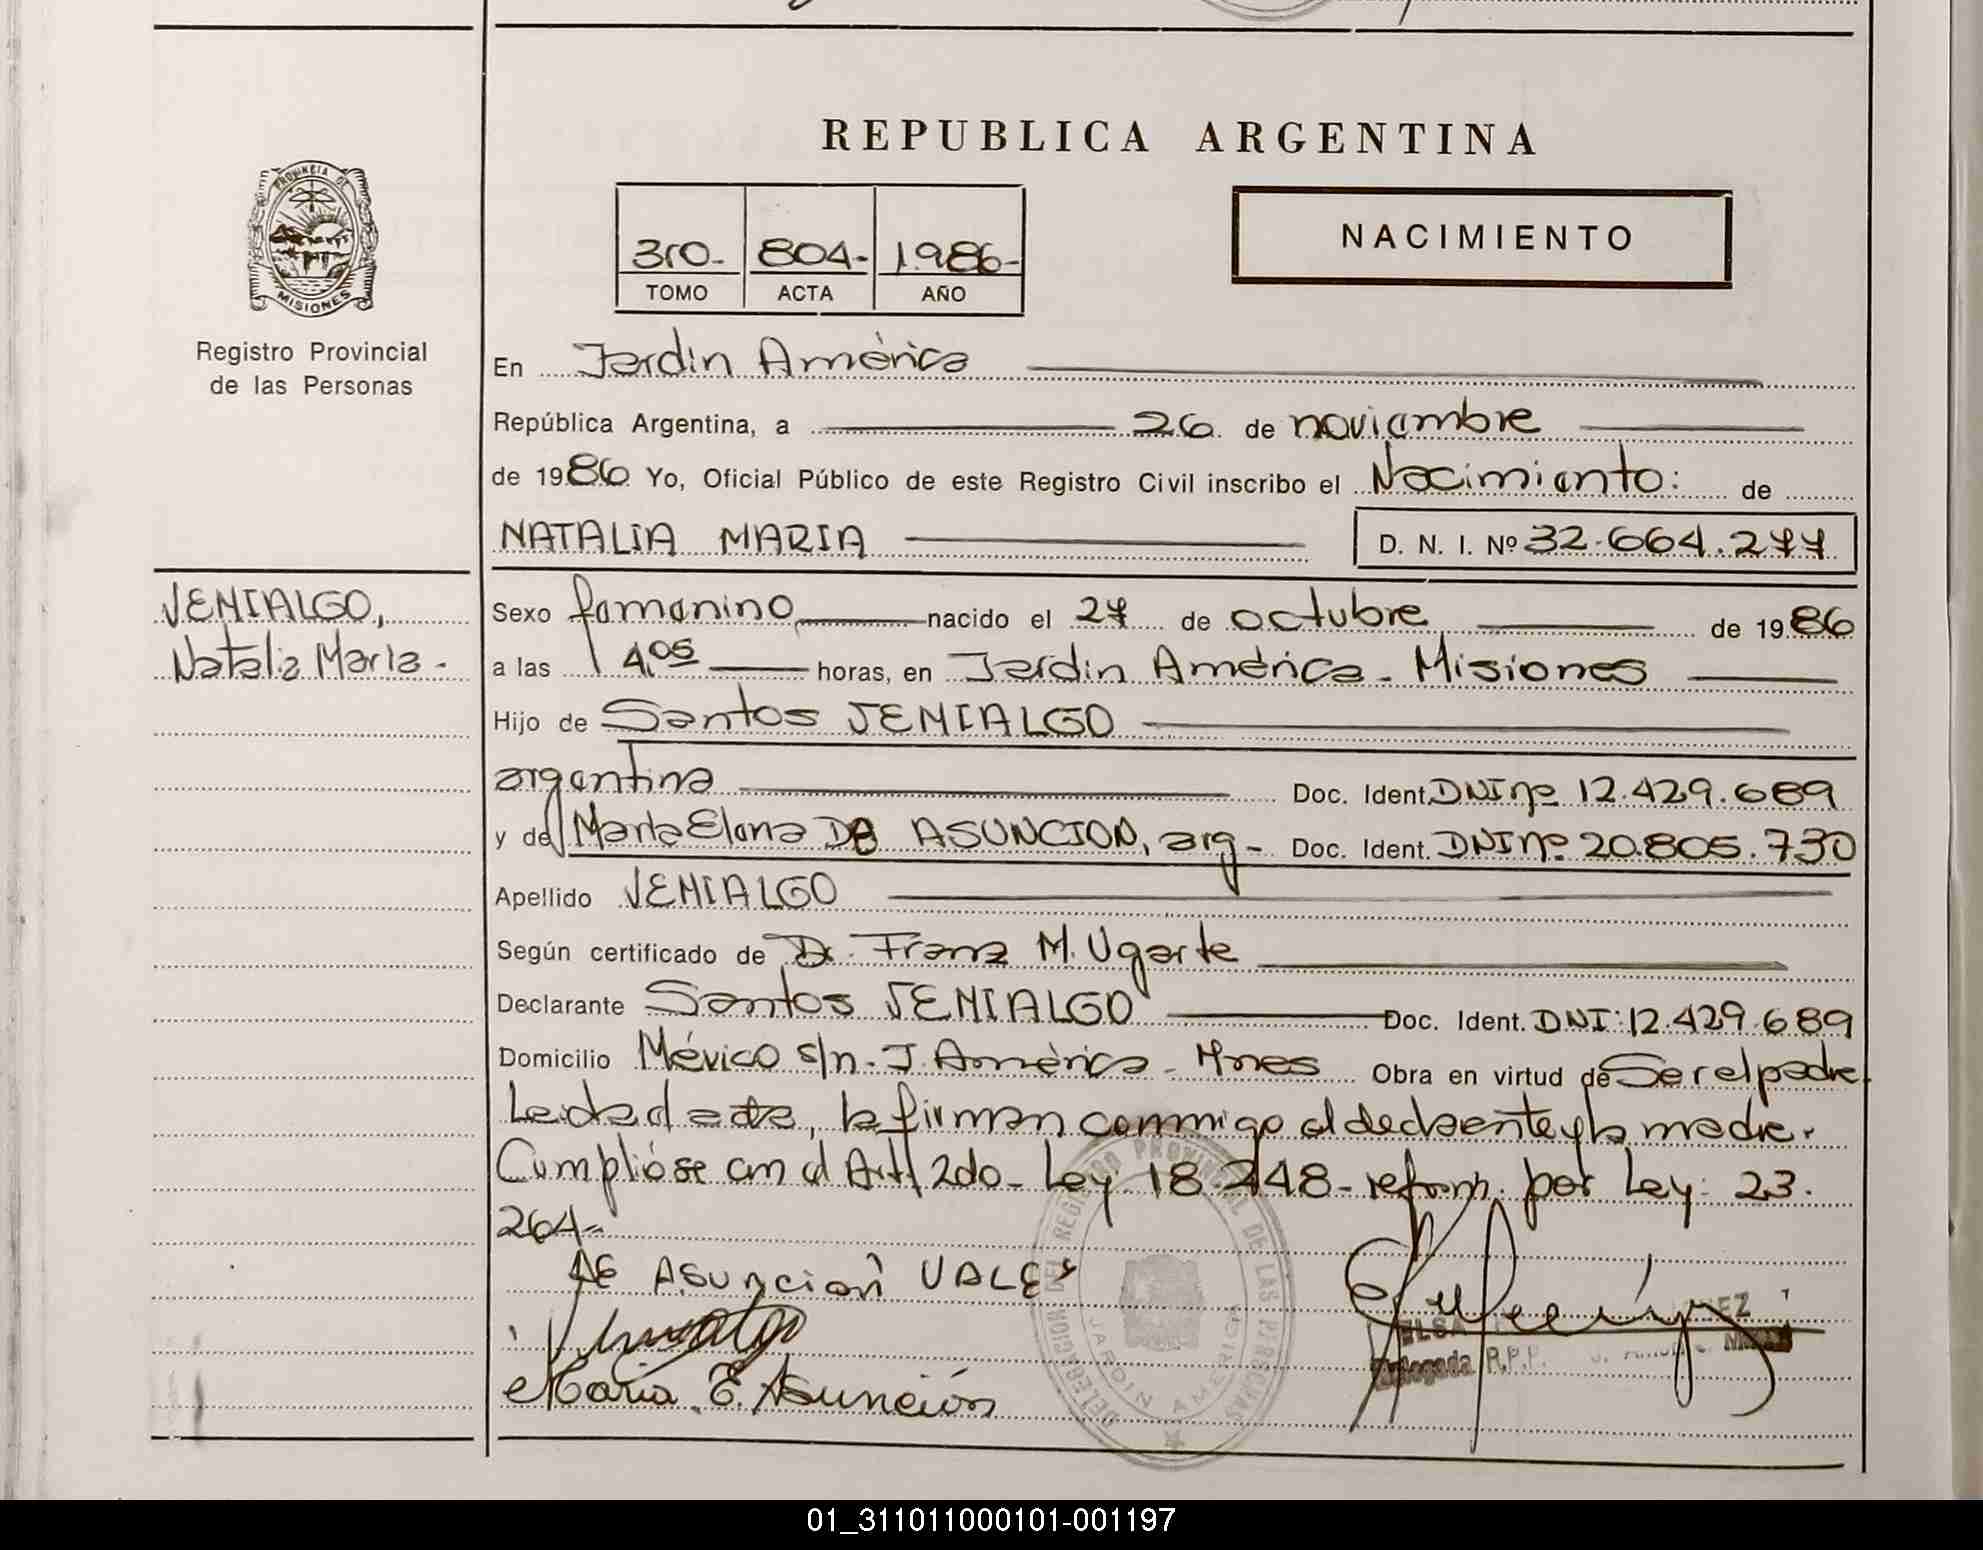 REPUBLICA ARGENTINA
PROVINCIA DE
MISIONES
Registro Provincial
de las Personas
310- 804- 1.986-
TOMO ACTA AÑO
NACIMIENTO
En Jardin América
República Argentina, a 26 de noviembre
de 1986 Yo, Oficial Público de este Registro Civil inscribo el Nacimiento: de
NATALIA MARIA D. N. I. Nº 32.664.277
JENIALGO,
Natalia Maria -
Sexo femenino nacido el 27 de octubre de 1986
a las 14,05 horas, en Jardin América - Misiones
Hijo de Santos JENIALGO
argentina Doc. Ident. DNI nº 12.429.689
y de Maria Elena DE ASUNCION, arg- Doc. Ident. DNI nº 20.805.730
Apellido JENIALGO
Según certificado de Dr. Franz M. Ugarte
Declarante Santos JENIALGO Doc. Ident. DNI: 12.429.689
Domicilio México s/n - J. América - Mnes Obra en virtud de Ser el padre.
Leida el acta, la firman conmigo el declarante y la madre.
Cumplióse con el Art 2do - Ley 18.248 - reform. por Ley: 23.
264-
DE Asunción VALE
Maria E. Asunción
DELEGACION DEL REGISTRO PROVINCIAL DE LAS PERSONAS
JARDIN AMERICA
ELSA
Delegada R.P.P.
01_311011000101-001197